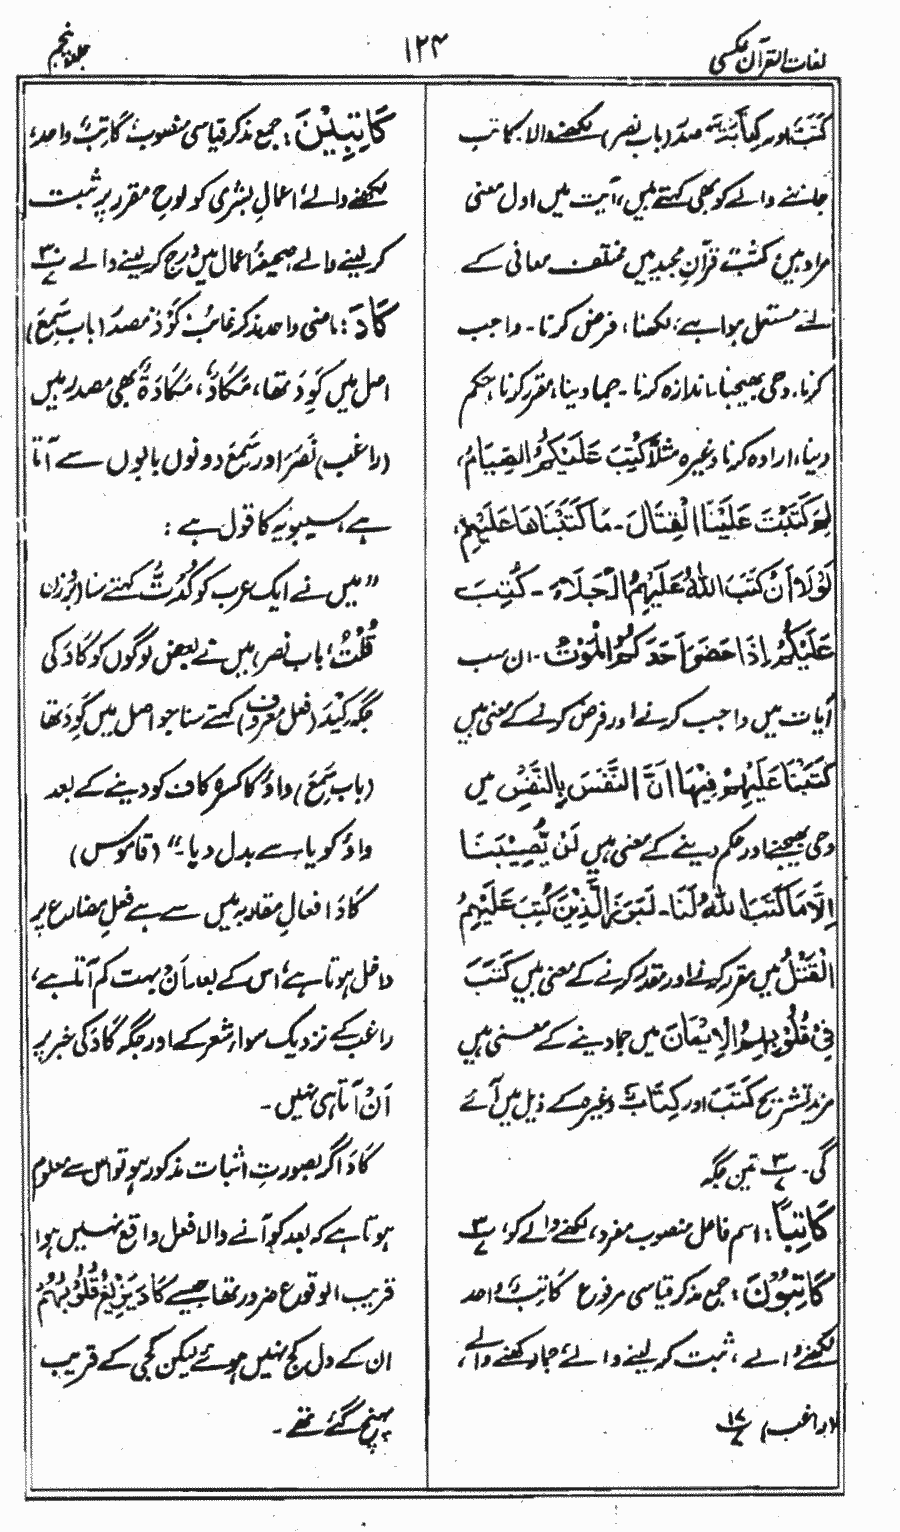 لغات القرآن مکسی
۱۲۴
جلد پنجم
کَتَبَ اور کِتَابَۃٌ مصدر (باب نصر) لکھنے والا کاتب
جاننے والے کو بھی کہتے ہیں، آیت میں اول معنی
مراد ہیں کَتَبَ قرآنِ مجید میں مختلف معانی کے
لئے مستعمل ہوا ہے، لکھنا، فرض کرنا۔ واجب
کرنا، وحی بھیجنا، اندازہ کرنا۔ جما دینا، مقرر کرنا، حکم
دینا، ارادہ کرنا وغیرہ مثلاً کُتِبَ عَلَیْکُمُ الصِّیَامُ،
لِمَ کَتَبْتَ عَلَیْنَا الْقِتَالَ۔ مَا کَتَبْنَاھَا عَلَیْہِمْ،
لَوْلَا اَنْ کَتَبَ اللہُ عَلَیْہِمُ الْجَلَاءَ۔ کُتِبَ
عَلَیْکُمْ اِذَا حَضَرَ اَحَدَکُمُ الْمَوْتُ۔ ان سب
آیات میں واجب کرنے اور فرض کرنے کے معنی ہیں
کَتَبْنَا عَلَیْہِمْ فِیْہَا اَنَّ النَّفْسَ بِالنَّفْسِ میں
وحی بھیجنے اور حکم دینے کے معنی ہیں لَنْ یُّصِیْبَنَا
اِلَّا مَا کَتَبَ اللہُ لَنَا۔ لَبَرَزَ الَّذِیْنَ کُتِبَ عَلَیْہِمُ
الْقَتْلُ میں مقرر کرنے اور مقدر کرنے کے معنی ہیں کَتَبَ
فِیْ قُلُوْبِہِمُ الْاِیْمَانَ میں جما دینے کے معنی ہیں
مزید تشریح کَتَبَ اور کِتَابٌ وغیرہ کے ذیل میں آئے
گی۔ ۳/۷ تین جگہ
کَاتِبًا: اسم فاعل منصوب مفرد، لکھنے والے کو، ۳/۷
کَاتِبُوْنَ: جمع مذکر قیاسی مرفوع کَاتِبٌ واحد
لکھنے والے، ثبت کر لینے والے، جما رکھنے والے،
(راغب) ۱۷/۷
کَاتِبِیْنَ: جمع مذکر قیاسی منصوب کَاتِبٌ واحد،
لکھنے والے، اعمالِ بشری کو لوحِ مقرر پر ثبت
کر لینے والے صحیفۂ اعمال میں درج کر لینے والے ۳۰/۷
کَادَ: ماضی واحد مذکر غائب کَوْدٌ مصدر (باب سَمِعَ)
اصل میں کَوِدَ تھا، مَکَادٌ، مَکَادَۃٌ بھی مصدر ہیں
(راغب) نَصَرَ اور سَمِعَ دونوں بابوں سے آتا
ہے، سیبویہ کا قول ہے:
”میں نے ایک عرب کو کُدْتُّ کہتے سنا (بروزن
قُلْتُ) باب نصر، میں نے بعض لوگوں کو کَادَ کی
جگہ کِیْدَ (فعل معروف) کہتے سنا جو اصل میں کَوِدَ تھا
(باب سَمِعَ) واؤ کا کسرہ کاف کو دینے کے بعد
واؤ کو یا سے بدل دیا۔“ (قاموس)
کَادَ افعالِ مقاربہ میں سے ہے فعلِ مضارع پر
داخل ہوتا ہے، اس کے بعد اَنْ بہت کم آتا ہے،
راغب کے نزدیک سوا شعر کے اور جگہ کَادَ کی خبر پر
اَنْ آتا ہی نہیں۔
کَادَ اگر بصورتِ اثبات مذکور ہو تو اس سے معلوم
ہوتا ہے کہ بعد کو آنے والا فعل واقع نہیں ہوا
قریب الوقوع ضرور تھا جیسے کَادَ یَزِیْغُ قُلُوْبُہُمْ
ان کے دل کج نہیں ہوئے لیکن کجی کے قریب
پہنچ گئے تھے۔